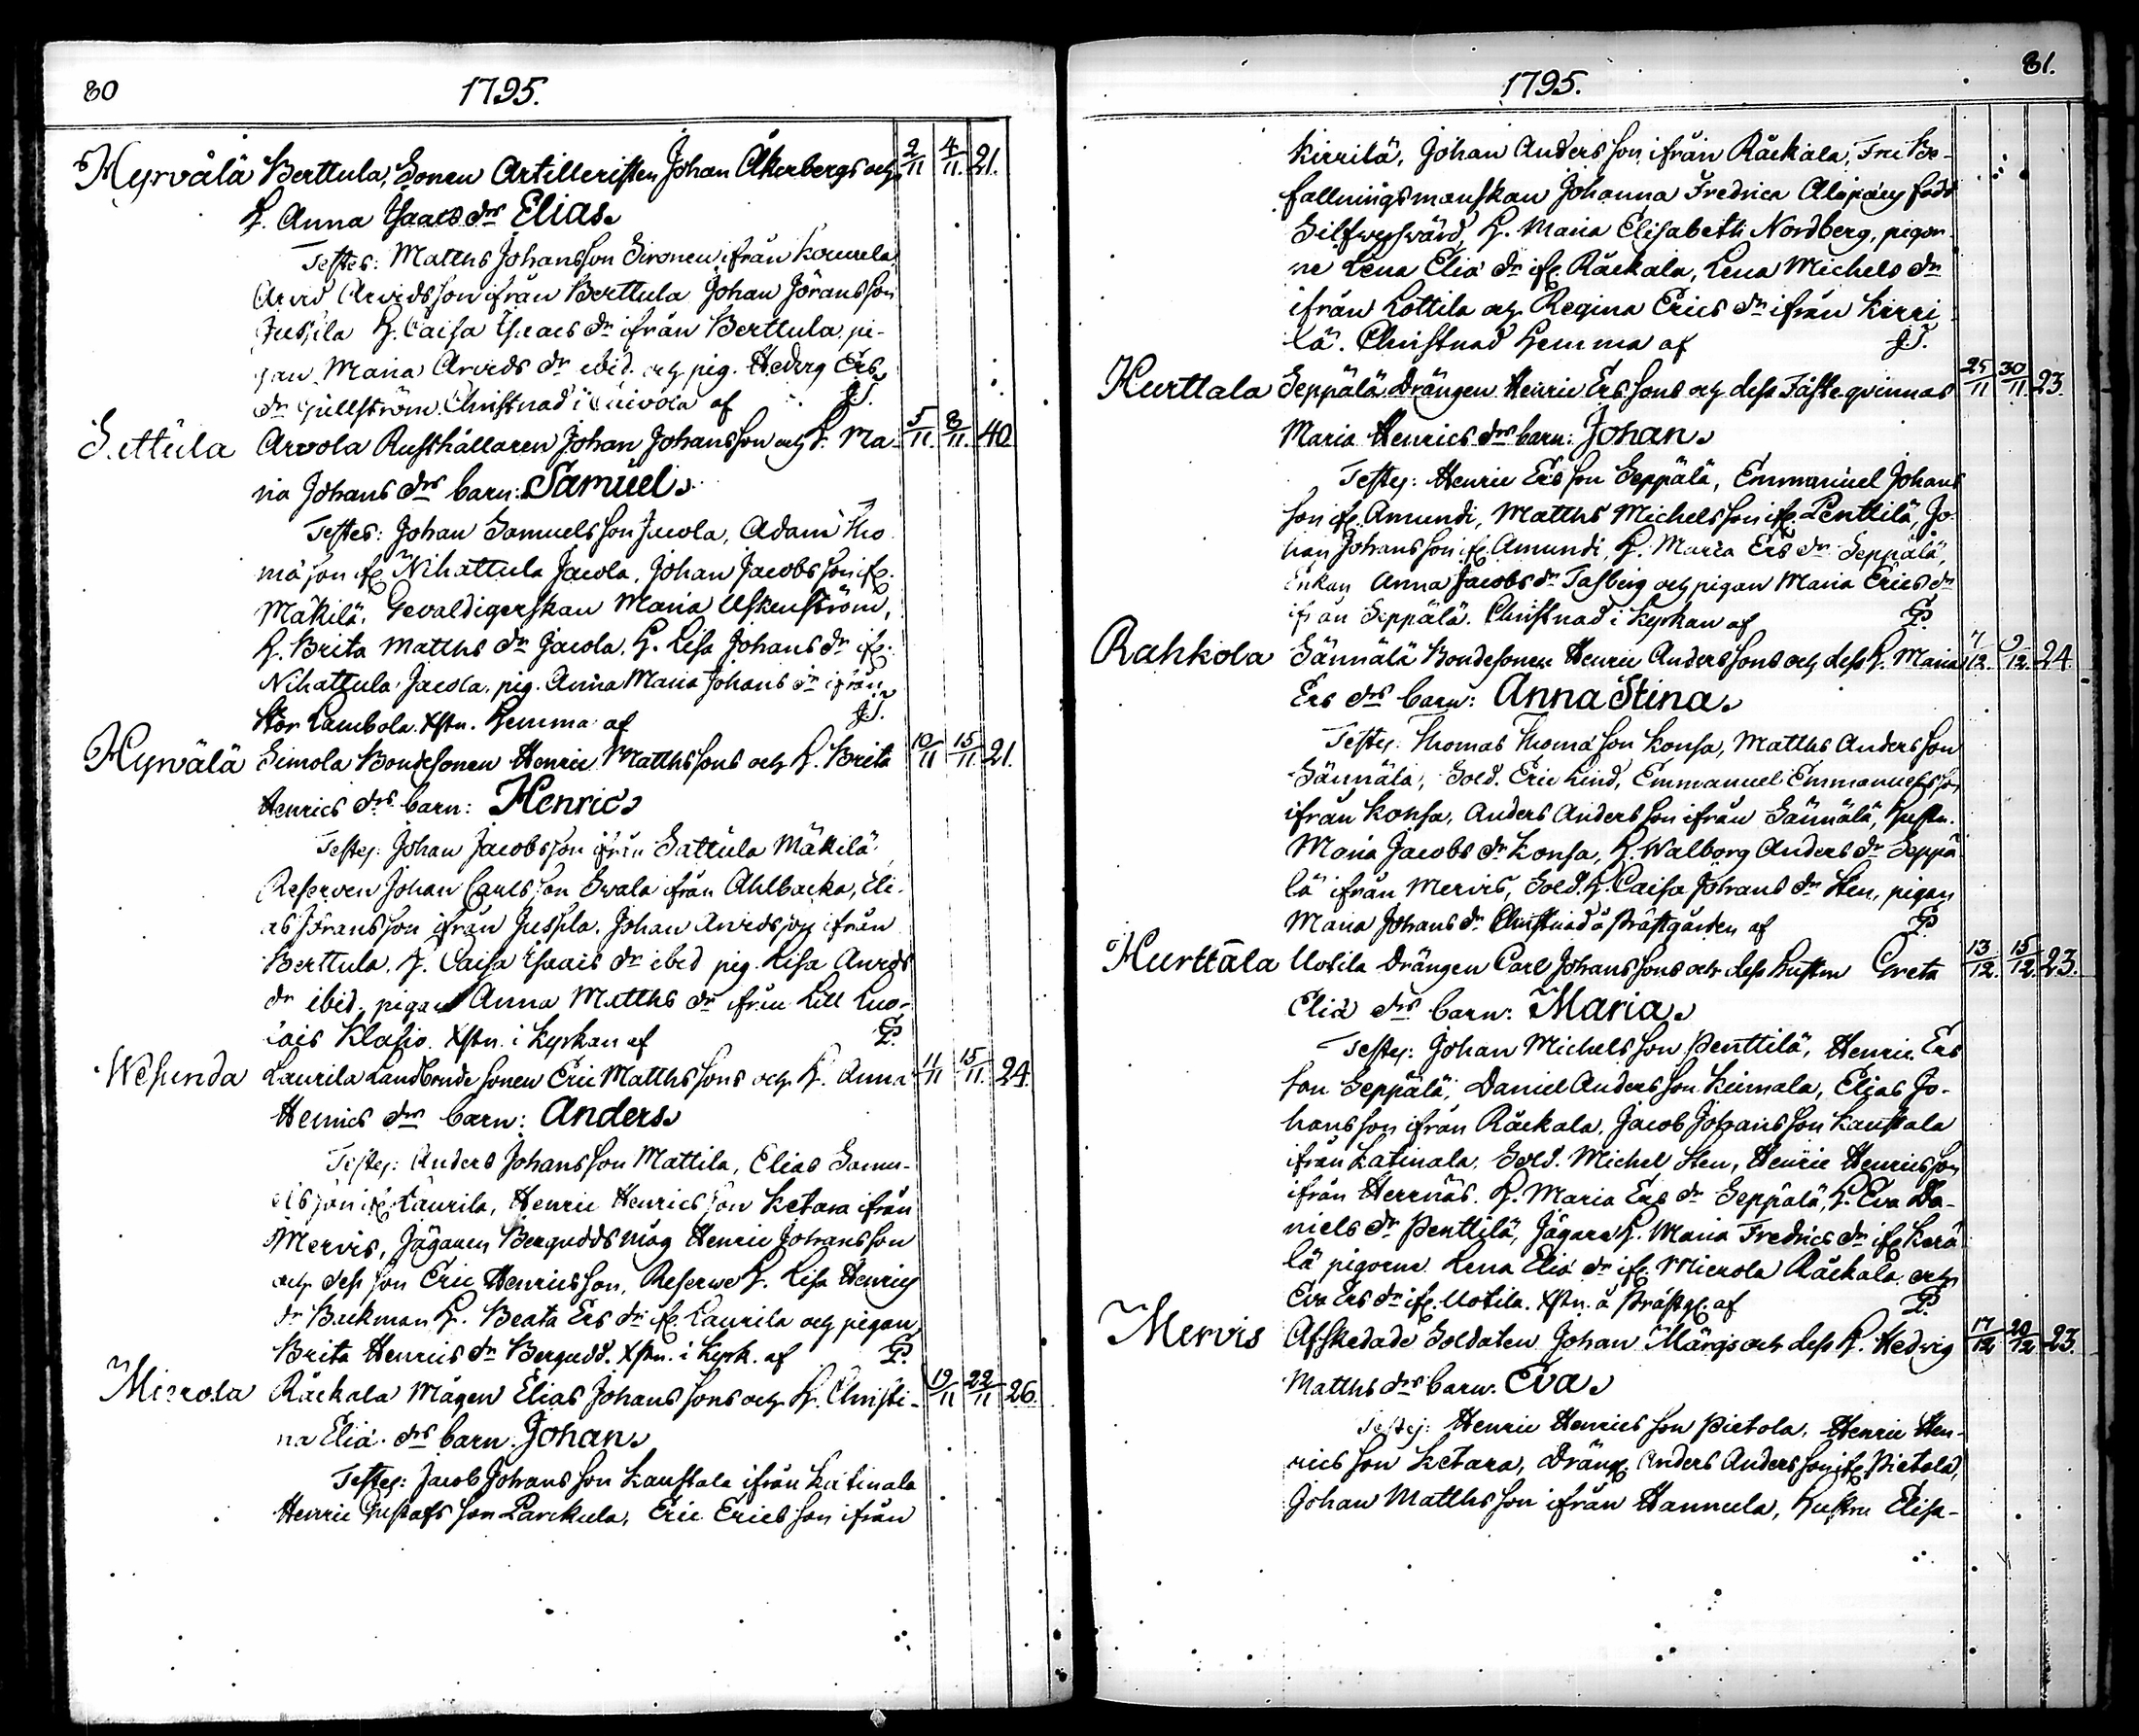 80
1795.
Hyrvälä Berttula, Sonen Artilleristen Johan Åkerbergs och 2/11 4/11. 21.
H. Anna Isaacs drs Elias.
Testes: Matths Johansson Sironen ifrån
Arvid Arvidsson ifrån Berttula Johan Göransson
Jussila H. Caisa Isaacs dr ifrån Berttula, pi-
gan Maria Arvids dr ibid. och pig. Hedvig Ers
dr Gullström Christnad i af J.S.
Settula Arvola Rusthållaren Johan Johansson och H. Ma- 5/11. 8/11. 40
ria Johans drs barn: Samuel.
Testes: Johan Samuelsson Jacola, Adam Tho
mä son ifr. Nihattula Jacola, Johan Jacobsson ifr.
Mäkilä, Gevaldigerskan Maria Uskenström,
H. Brita Matths dr Jacola, H. Lisa Johans dr ifr.
Nihattula Jacola, pig. Anna Maria Johans dr ifrån
Stor Lambola. Xstn. hemma af J.S.
Hyrvälä Simola Bondesonen Henric Matthssons och H. Brita 10/11 15/11 21.
Henrics drs barn: Henric
Testes: Johan Jacobsson ifrån Sattula Mäkilä
Reserven Johan Carlsson Swala ifrån Ahlbacka, Eli-
as Fransson ifrån Jussila, Johan Arvidsson ifrån
Berttula, H. Caisa Isaacs dr ibid pig. Lisa Arvids
dr ibid. pigan Anna Matths dr ifrån Lill Luo-
lais Klasio. Xstn. i Kyrkan af P.
Wesunda Laurila Landbonde sonen Eric Matthssons och H. Anna 11/11 15/11. 24.
Henrics drs barn: Anders
Testes: Anders Johansson Mattila, Elias Samu-
elsson ifr. Laurila, Henric Henricsson Ketara ifrån
Mervis, Jägaren Bergudds måg Henric Johansson
och dess son Eric Henricsson, Reserve H. Lisa Henrics
dr Backman H. Beata Ers dr ifr. Laurila och pigan
Brita Henrics dr Bergudd. Xstn. i Kyrk. af P.
Mierola Räckala Mågen Elias Johanssons och H. Christi- 19/11 22/11 26.
na Eliä drs barn. Johan.
Testes: Jacob Johansson Kaustala ifrån Katinala
Henric Gustafsson Parckula, Eric Ericsson ifrån
81.
1795.
Kirrilä, Johan Andersson ifrån Räckala, Fru Be-
fallningsmanskan Johanna Fredrica född
H. Maria Elisabeth Nordberg, pigor-
ne Lena Eliä dr ifr. Räckala, Lena Michels dr
ifrån Lottila och Regina Erics dr ifrån Kirri
lä. Christnad hemma af J.S.
Hurttala Seppälä Drängen Henric Erssons och dess Fästeqvinnas 25/11 30/11. 23.
Maria Henrics drs barn: Johan.
Testes: Henric Ersson Seppälä, Emmanuel Johans
son ifr. Amundi, Matths Michelsson ifr. Penttilä, Jo-
han Johansson ifr. Amundi, H. Maria Ers dr Seppälä,
Enkan Anna Jacobs dr Tasberg och pigan Maria Erics dr
ifrån Seppälä. Christnad i Kyrkan af P.
Rahkola Sännälä Bondesonen Henric Anderssons och dess H. Maria 7/12. 9/12. 24.
Ers drs barn: Anna Stina.
Testes: Thomas Thomä son Konsa, Matths Andersson
Sännälä, Sold. Eric Lind, Emmanuel Emmanuelsson
ifrån Konsa, Anders Andersson ifrån Sännälä, Hustr.
Maria Jacobs dr Konsa, H. Walborg Anders dr Seppä
lä ifrån Mervis, Sold. H. Caisa Johans dr Sten, pigan
Maria Johans dr Christnad å Prästgården af P
Hurttala Uotila Drängen Carl Johanssons och dess Hustru Greta 13/12. 15/12. 23.
Eliä drs barn: Maria.
Testes: Johan Michelsson Penttilä, Henric Ers
son Seppälä, Daniel Andersson Keimala, Elias Jo-
hansson ifrån Räckala, Jacob Johansson Kaustala
ifrån Katinala, Sold. Michel Sten, Henric Henricsson
ifrån Herrnäs. H. Maria Ers dr Seppälä, H. Eva Da-
niels dr Penttilä, Jägare H. Maria Fredrics dr ifr. Kerä
lä pigorne Lena Eliä dr ifr. Mierola Räckala och
Eva Ers dr ifr. Uotila. Xstn. å Prästg. af P.
Mervis Afskedade Soldaten Johan Märgs och dess H. Hedvig 17/12 20/12 23.
Matths drs barn. Eva.
Testes: Henric Henricsson Pietola, Henric Hen-
ricsson Ketara, Dräng. Anders Andersson ifr. Pietola,
Johan Matthsson ifrån Hannula, Hustru Elisa-